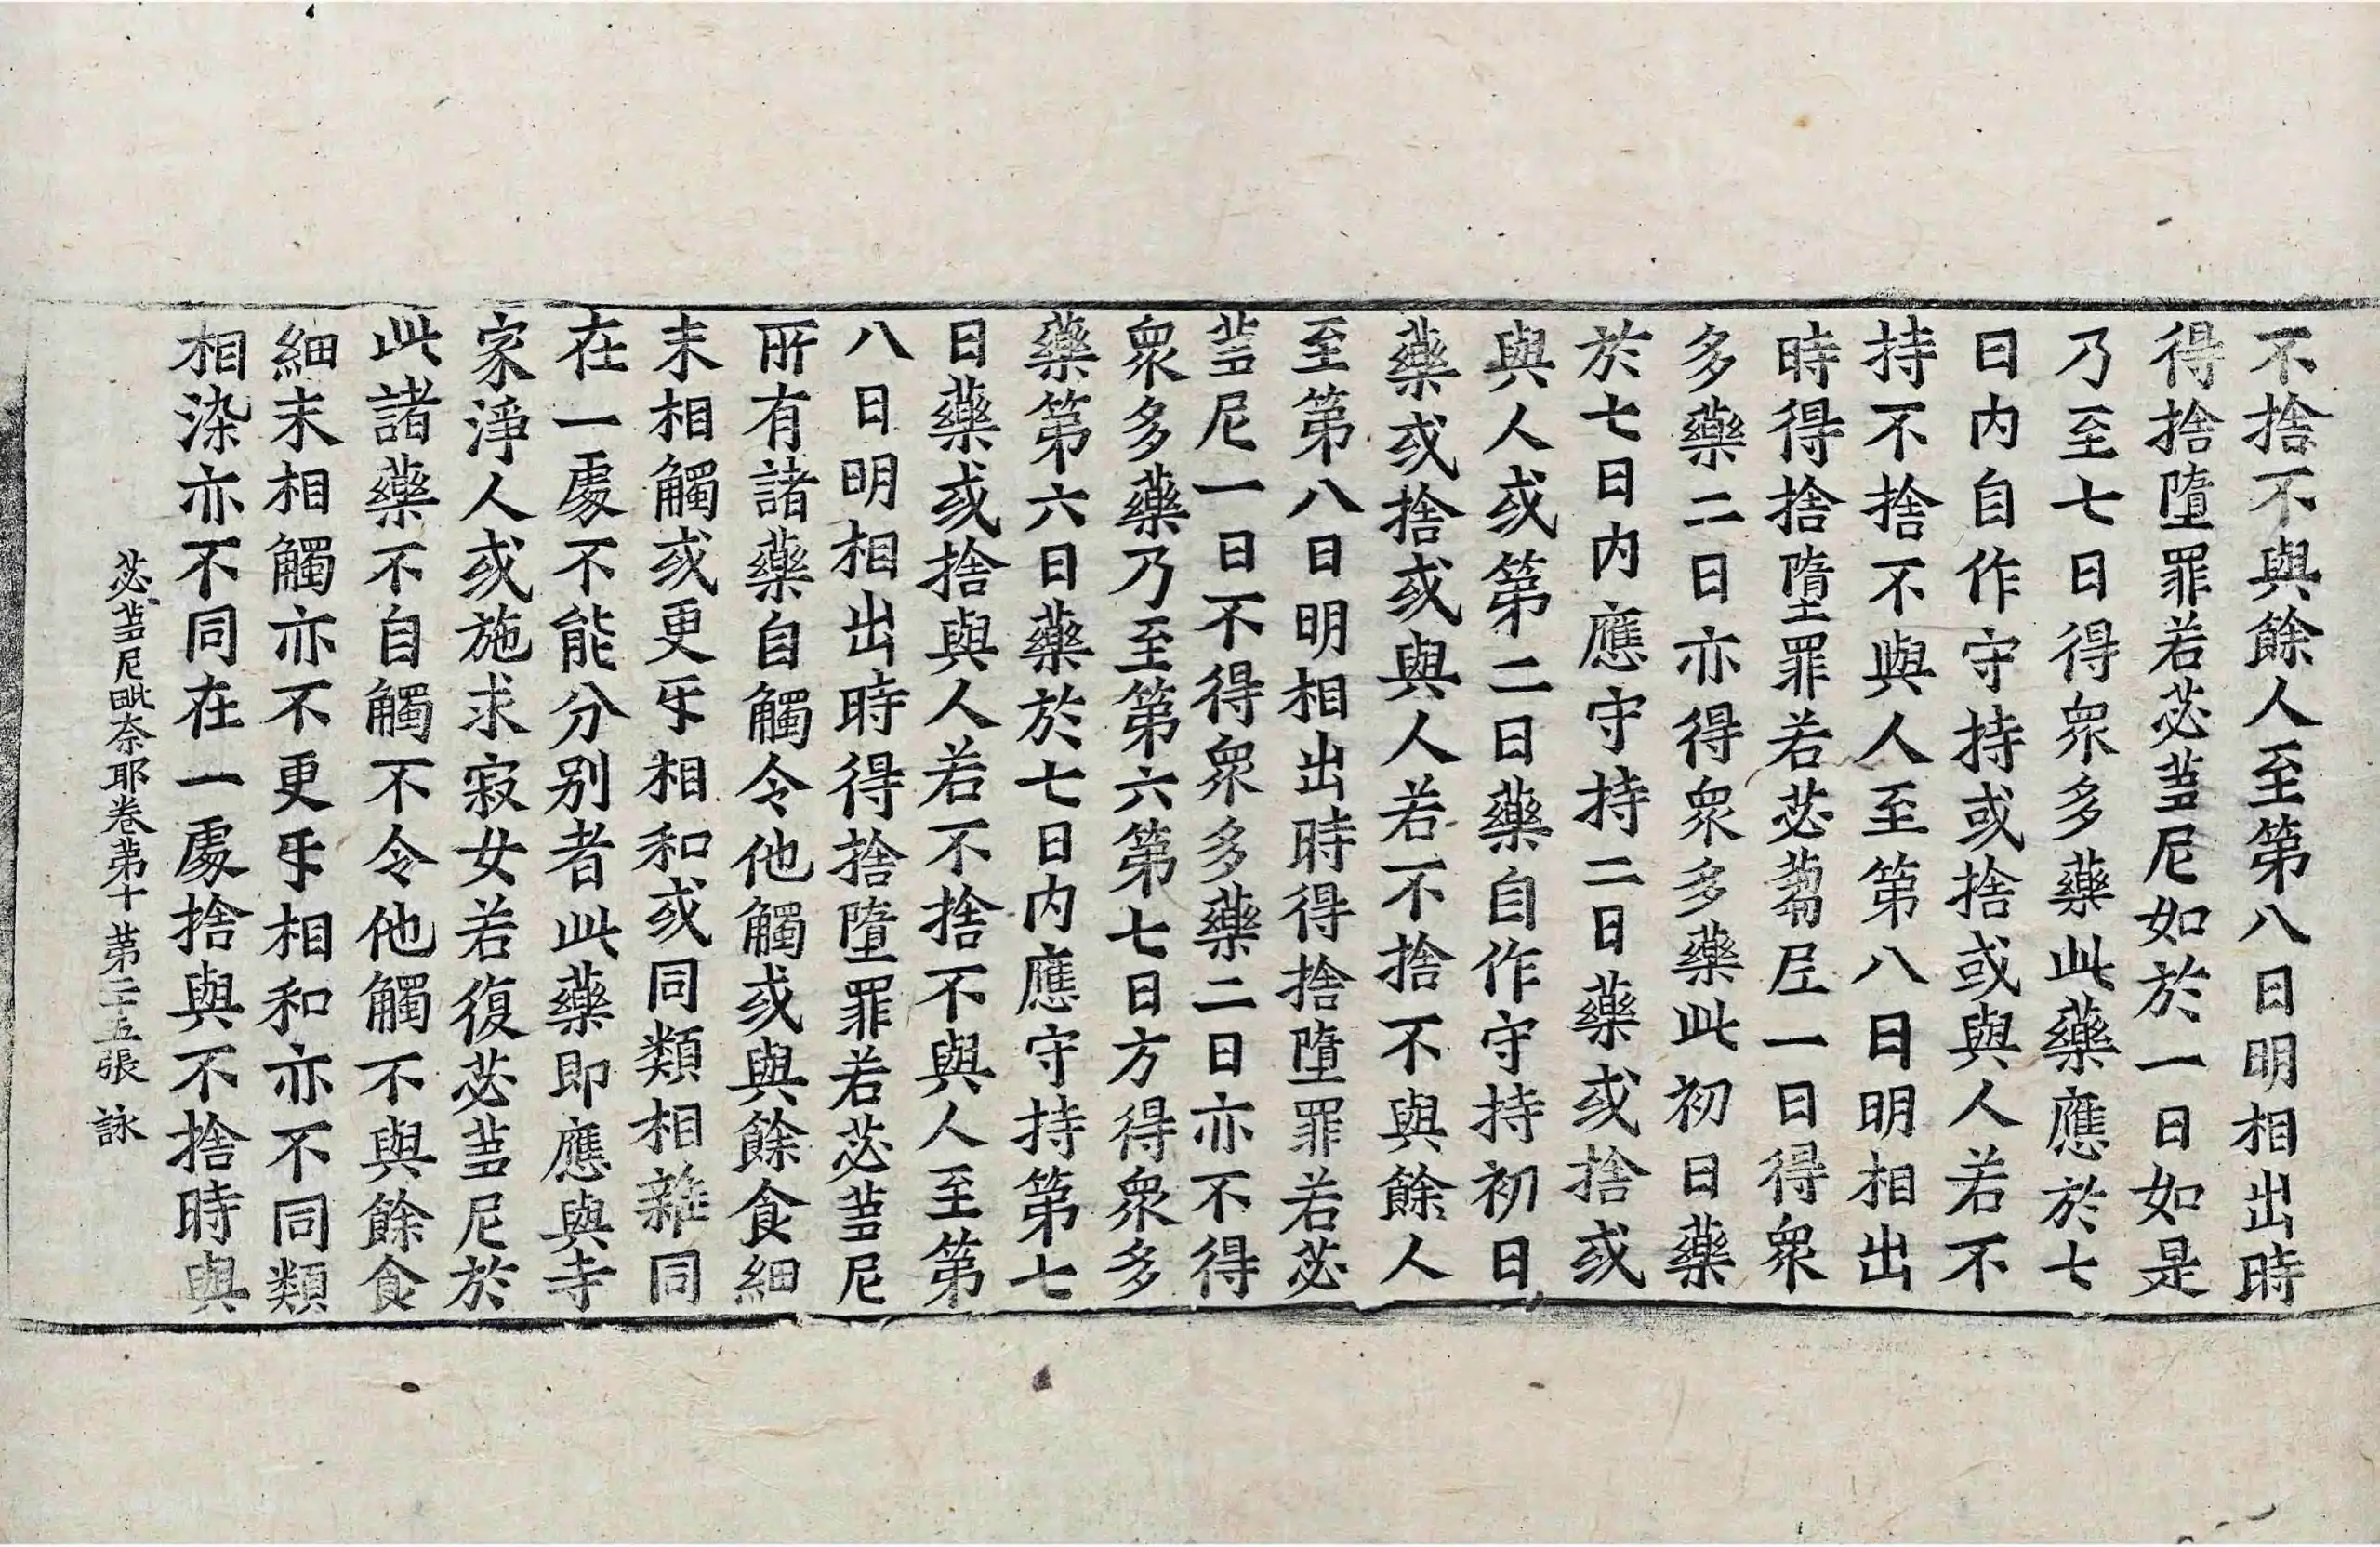 不捨不與餘人至第八日明相出時
得捨墮罪若苾蒭尼如於一日如是
乃至七日得衆多藥此藥應於七
日内自作守持或捨或與人若不
持不捨不與人至第八日明相出
時得捨墮罪若苾蒭尼一日得衆
多藥二日亦得衆多藥此初日藥
於七日内應守持二日藥或捨或
與人或第二日藥自作守持初日
藥或捨或與人若不捨不與餘人
至第八日明相出時得捨墮罪若苾
蒭尼一日不得衆多藥二日亦不得
衆多藥乃至第六第七日方得衆多
藥第六日藥於七日内應守持第七
日藥或捨與人若不捨不與人至第
八日明相出時得捨墮罪若苾蒭尼
所有諸藥自觸令他觸或與餘食細
末相觸或更㸦相和或同類相雜同
在一處不能分别者此藥即應與寺
家淨人或施求寂女若復苾蒭尼於
此諸藥不自觸不令他觸不與餘食
細末相觸亦不更㸦相和亦不同類
相染亦不同在一處捨與不捨時與
苾蒭尼毗奈耶卷第十 第二十五張 詠